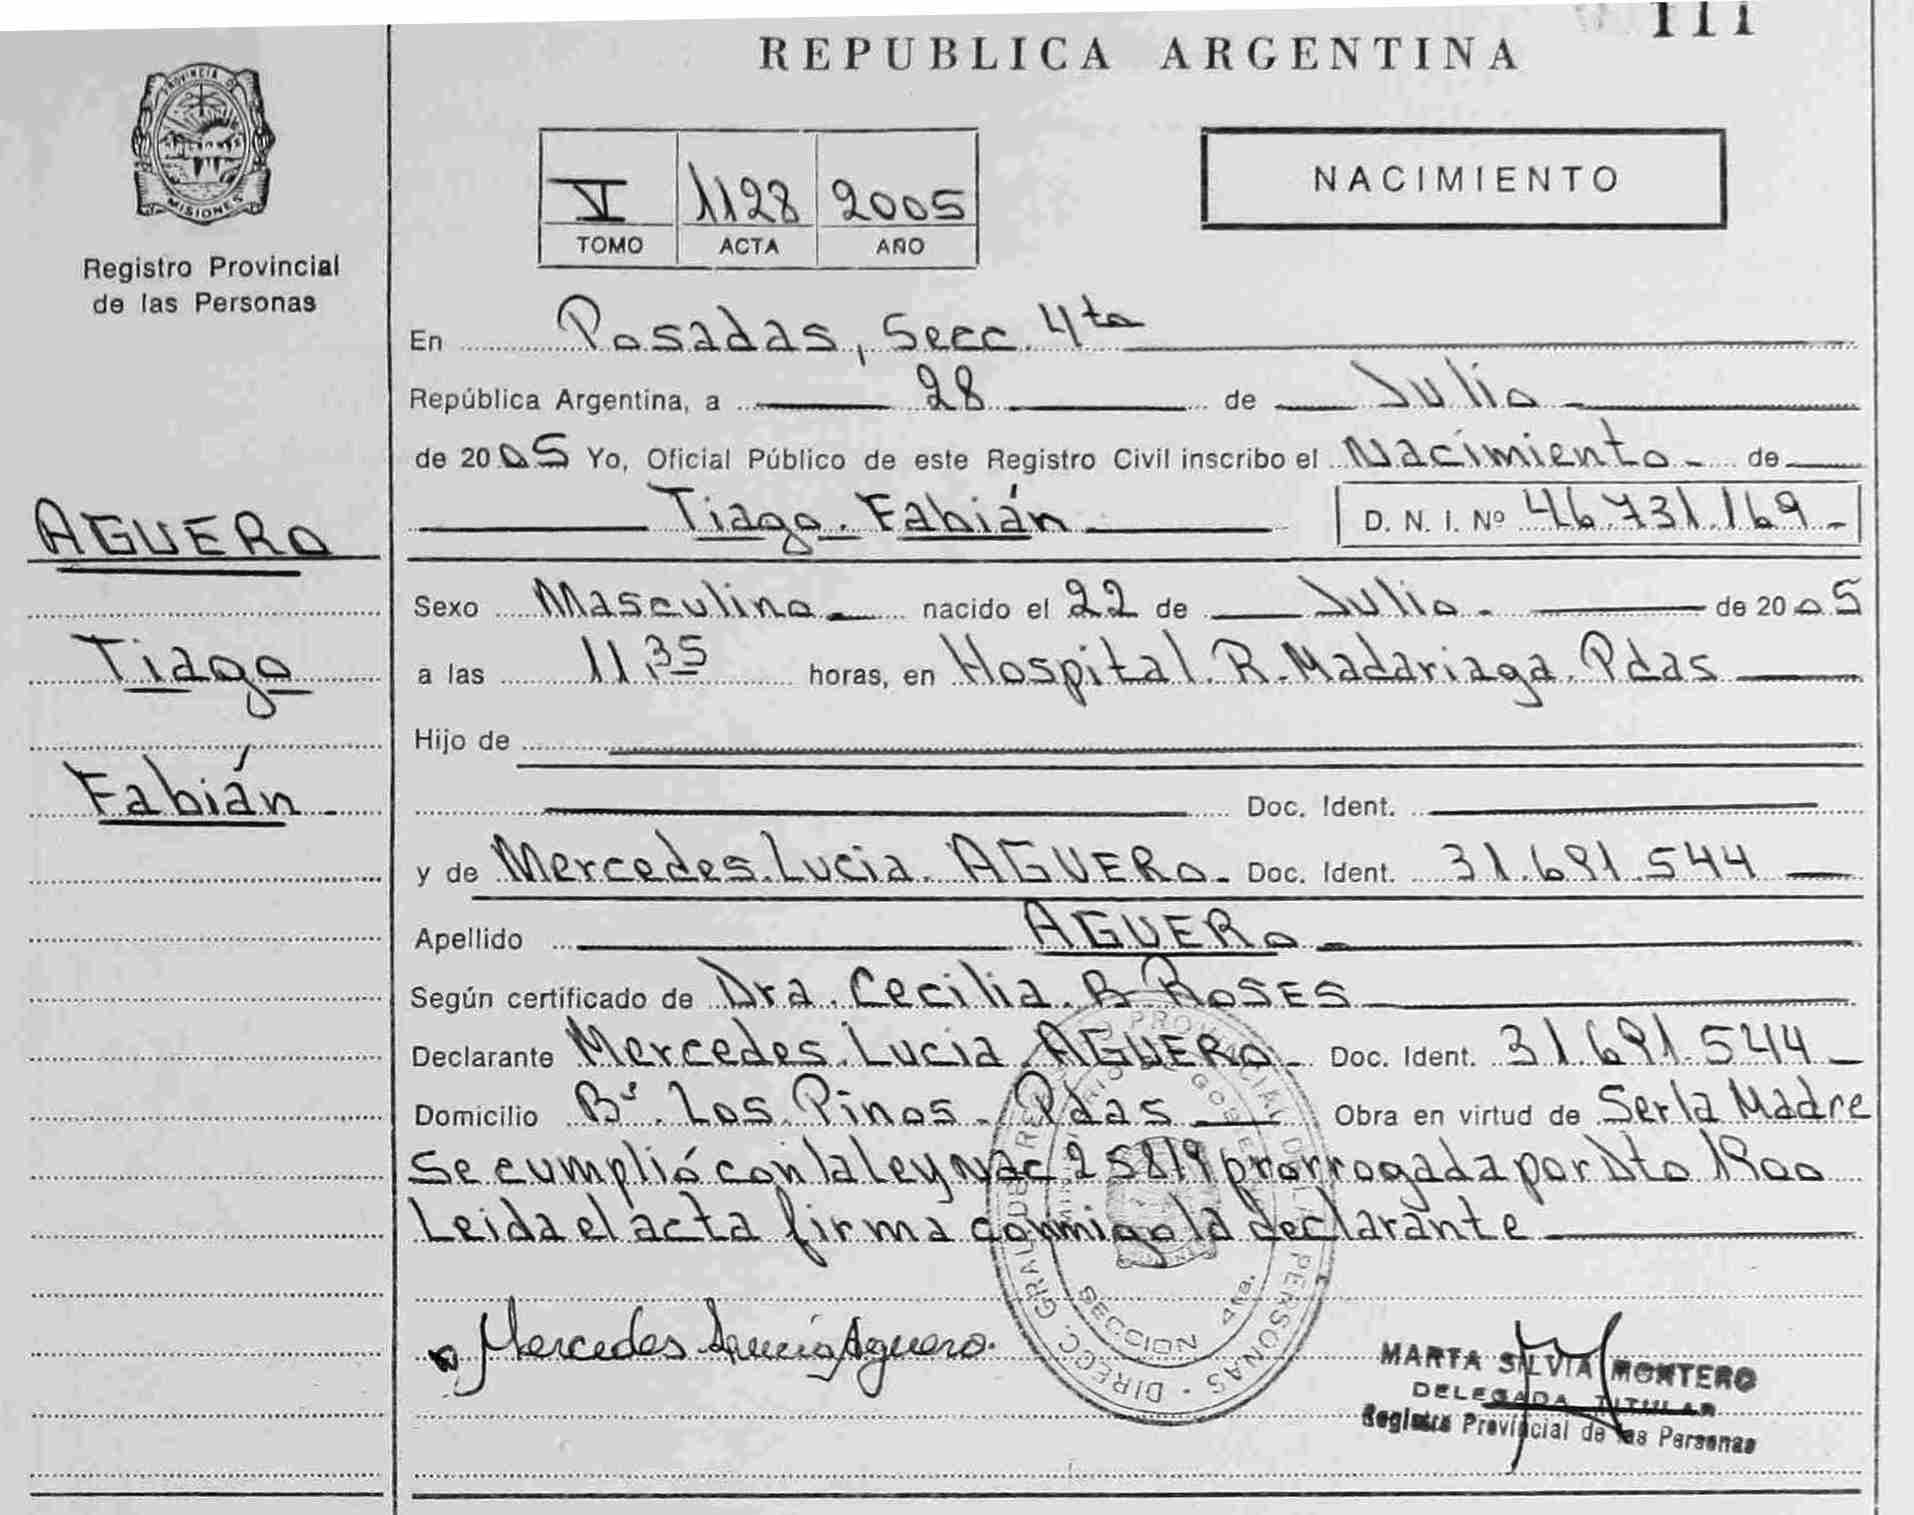 111
REPUBLICA ARGENTINA
PROVINCIA DE
MISIONES
Registro Provincial
de las Personas
V 1128 2005
TOMO ACTA AÑO
NACIMIENTO
En Posadas, Secc. 4ta
República Argentina, a 28 de Julio
de 2005 Yo, Oficial Público de este Registro Civil inscribo el Nacimiento de
AGUERO
Tiago Fabián D. N. I. Nº 46.731.169
Sexo Masculino nacido el 22 de Julio de 2005
Tiago
a las 11,35 horas, en Hospital R. Madariaga. Pdas
Hijo de
Fabián
Doc. Ident.
y de Mercedes Lucia AGUERO Doc. Ident. 31.691.544
Apellido AGUERO
Según certificado de Dra. Cecilia B ROSES
Declarante Mercedes Lucia AGUERO Doc. Ident. 31.691.544
Domicilio Bº Los Pinos - Pdas Obra en virtud de Ser la Madre
Se cumplió con la ley Nac 25819 prorrogada por Dto 1900
Leida el acta firma conmigo la declarante
Mercedes Lucia Aguero
DIRECC. GRAL. DE REG PROVINCIAL DE LAS PERSONAS
SECCION 4ta.
MARTA SILVIA MONTERO
DELEGADA TITULAR
Registro Provincial de las Personas